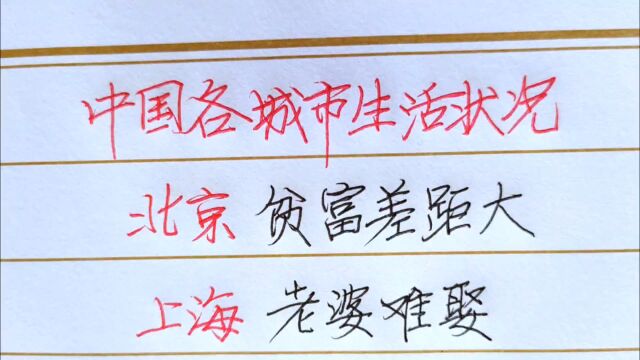 中国各城市生活状况
北京 贫富差距大
上海 老婆难娶